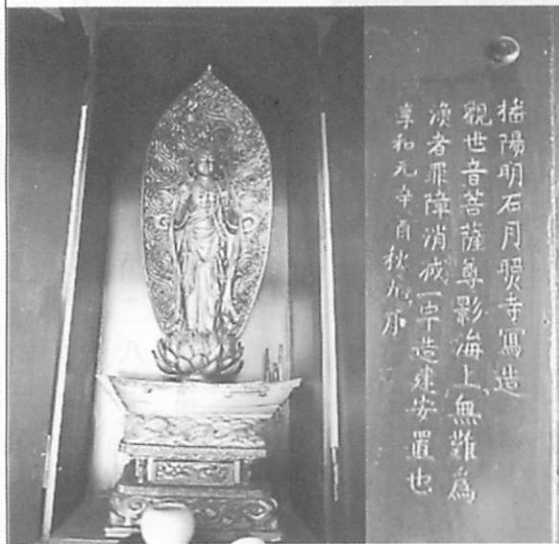 播陽明石月照寺寫造
觀世音菩薩尊影海上無難為
漁者罪障消滅一宇造建安置也
享和元辛酉秋九月